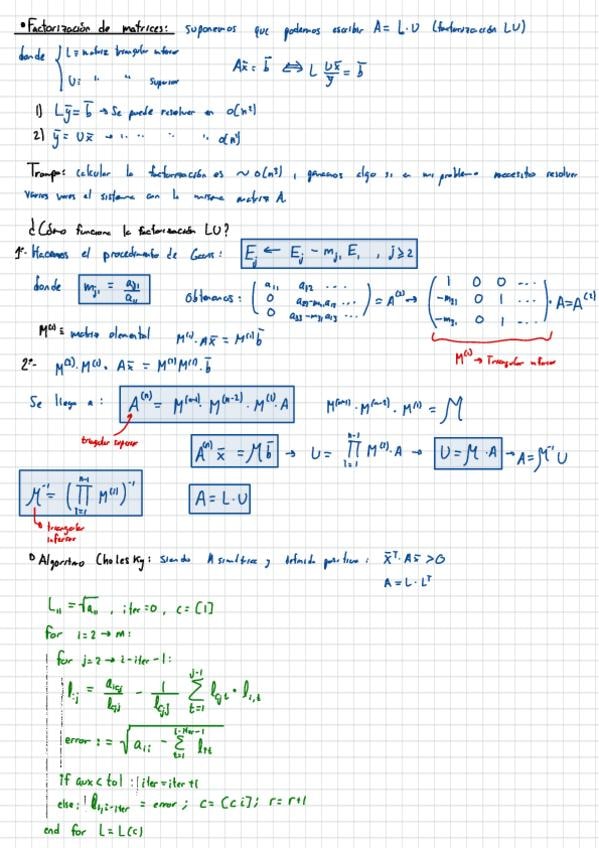 • Factorización de matrices: suponemos que podemos escribir A = L·U (factorización LU)
donde { L = matriz triangular inferior
U = " " superior
Ax̄ = b̄ ⟺ L Ux̄ = b̄
ȳ
1) Lȳ = b̄ → Se puede resolver en o(n²)
2) ȳ = Ux̄ → " " " " o(n²)
Trampa: calcular la factorización es ~ o(n³), ganamos algo si en mi problema necesito resolver
varias veces el sistema con la misma matriz A.
¿Cómo funciona la factorización LU?
1º- Hacemos el procedimiento de Gauss: E_j ← E_j - m_j1 E_1 , j ≥ 2
donde m_j1 = a_j1 / a_11 Obtenemos: ( a_11 a_12 ... ; 0 a_22-m_21a_12 ... ; 0 a_33-m_31a_13 ... ) = A^(2) → ( 1 0 0 ... ; -m_21 0 1 ... ; -m_31 0 1 ... ) · A = A^(2)
M^(1) = matriz elemental M^(1)·Ax̄ = M^(1) b̄
M^(1) → Triangular inferior
2º- M^(2)·M^(1)· Ax̄ = M^(2) M^(1)· b̄
Se llega a: A^(n) = M^(n-1)· M^(n-2)· M^(1)· A M^(n-1)· M^(n-2)· M^(1) = M
triangular superior
A^(n) x̄ = M b̄ → U = ∏_{i=1}^{n-1} M^(i)· A → U = M·A → A = M^-1 U
M^-1 = (∏_{i=1}^{n-1} M^(i))^-1 A = L·U
triangular
inferior
Algoritmo Cholesky: siendo A simétrica y definida positiva: x̄^T·Ax̄ > 0
A = L·L^T
L_11 = √a_11 , iter=0 , c = [1]
for i=2 → m:
for j=2 → i-iter-1:
l_ij = a_icj / l_cjj - 1 / l_cjj ∑_{t=1}^{j-1} l_cjt · l_i,t
error := √(a_ii - ∑_{t=1}^{i-iter-1} l_it)
if aux < tol : | iter = iter+1
else: | l_i,i-iter = error ; c = [c i]; r = r+1
end for L = L(c)